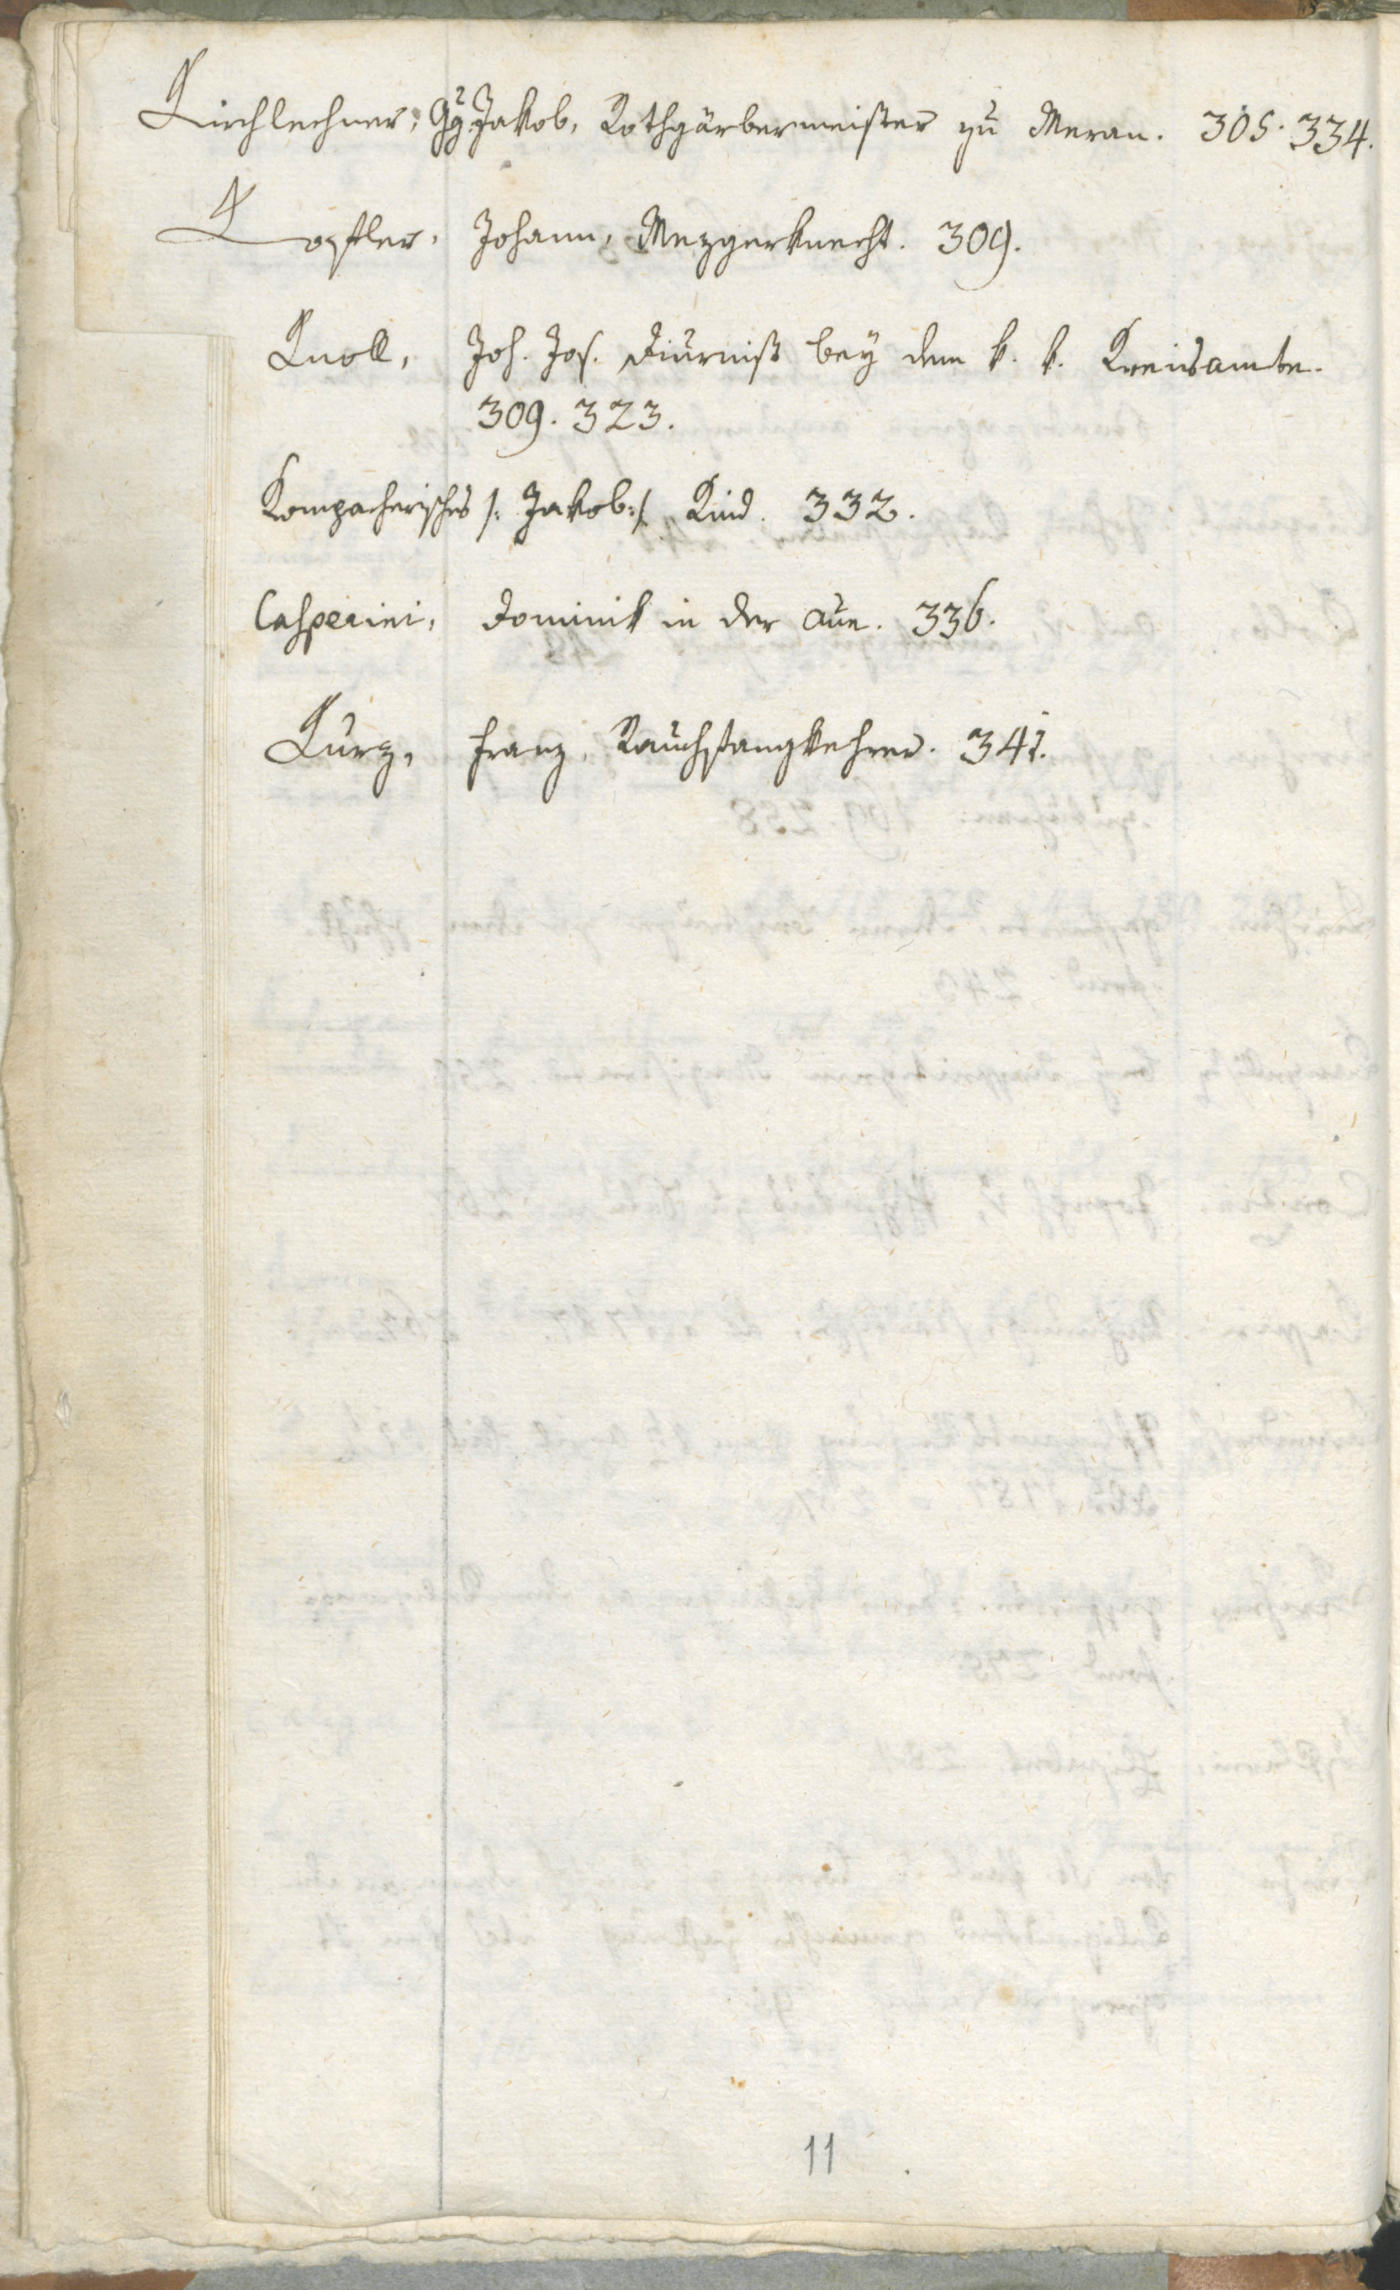 Kirchlechner, Gg. Jakob, Rothgärbermeister zu Meran. 305. 334.
Kofler, Johann, Mezgerknecht. 309.
Knoll, Joh. Jos. Diurnist bey dem k. k. Kreisamte.
309. 323.
Kompacherisches /: Jakob :/ Kind. 332.
Casperini, Dominik in der Aue. 336.
Kurz, Franz, Rauchfangkehrer. 341.
11